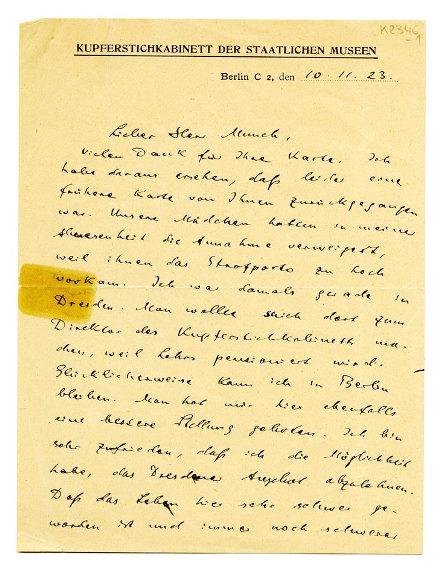 K2346
-1
KUPFERSTICHKABINETT DER STAATLICHEN MUSEEN
Berlin C 2, den 10. 11. 23.
Lieber Herr Munch,
vielen Dank für Ihre Karte. Ich
habe daraus ersehen, daß leider eine
frühere Karte von Ihnen zurückgegangen
war. Unsere Mädchen hatten in meiner
Abwesenheit die Annahme verweigert,
weil ihnen das Strafporto zu hoch
vorkam. Ich war damals gerade in
Dresden. Man wollte mich dort zum
Direktor des Kupferstichkabinetts ma-
chen, weil Lehrs pensioniert wird.
Glücklicherweise kann ich in Berlin
bleiben. Man hat mir hier ebenfalls
eine bessere Stellung geboten. Ich bin
sehr zufrieden, daß ich die Möglichkeit
habe, das Dresdener Angebot abzulehnen.
Daß das Leben hier sehr schwer ge-
worden ist und immer noch schwerer